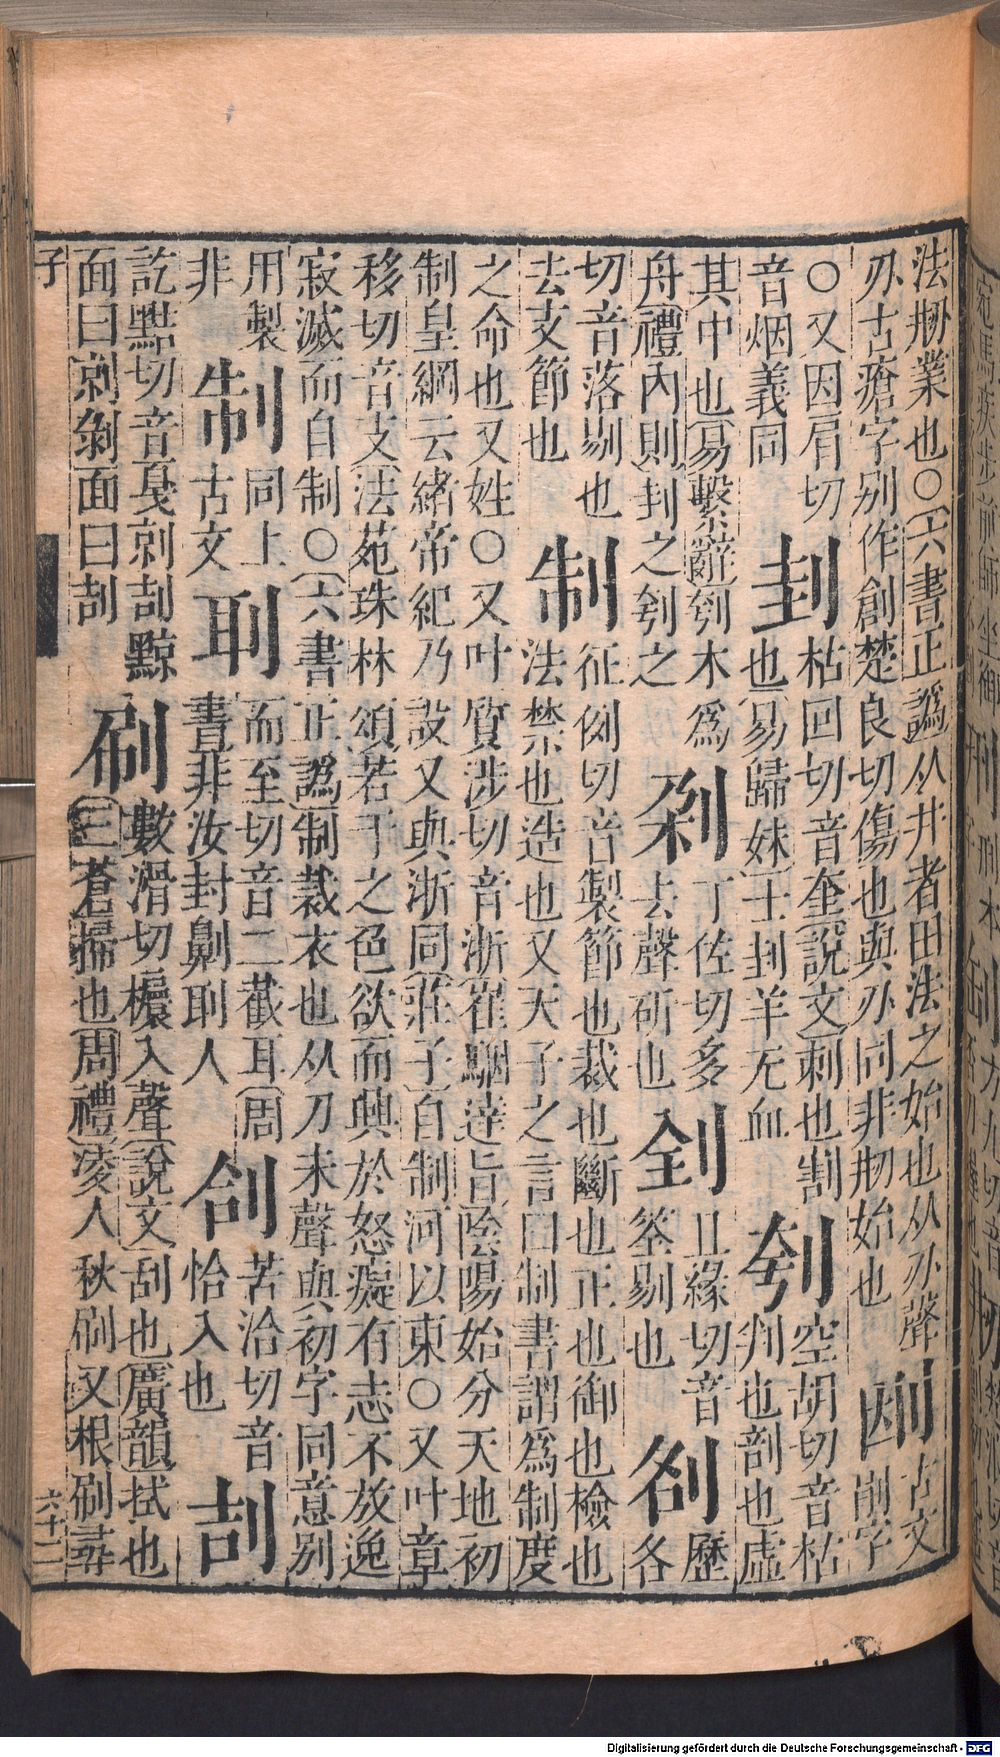 法剙業也○六書正譌从井者田法之始也从刅聲𠛎古文
刅古瘡字別作創楚良切傷也與刅同非剙始也 剏字
○又因肩切刲枯回切音奎說文刺也割刳空胡切音枯
音烟義同 也易歸妹士刲羊无血 判也剖也虛
其中也易繫辭刳木爲剁丁佐切多 刽且緣切音 㓟歷
舟禮內則刲之刳之 去聲斫也 筌剔也 各
切音落剔也制征例切音製節也裁也斷也正也御也檢也
去支節也 法禁也造也又天子之言曰制書謂爲制度
之命也又姓○又叶質涉切音浙崔駰達旨陰陽始分天地初
制皇綱云緒帝紀乃設又與浙同莊子自制河以東○又叶章
移切音支法苑珠林頌若于之色欲而興於怒癡有志不放逸
寂滅而自制○六書正譌制裁衣也从刀未聲與初字同意別
用製 同上 而至切音二截耳周 苦洽切音
非 古文刵書非汝封劓刵人 㓣恰入也 㓤
訖黠切音戛剠㓤黥刷數滑切欜入聲說文刮也廣韻拭也
面曰剠剝面曰㓤 三蒼掃也周禮淩人秋刷又根刷尋
子 六十二
Digitalisierung gefördert durch die Deutsche Forschungsgemeinschaft - DFG